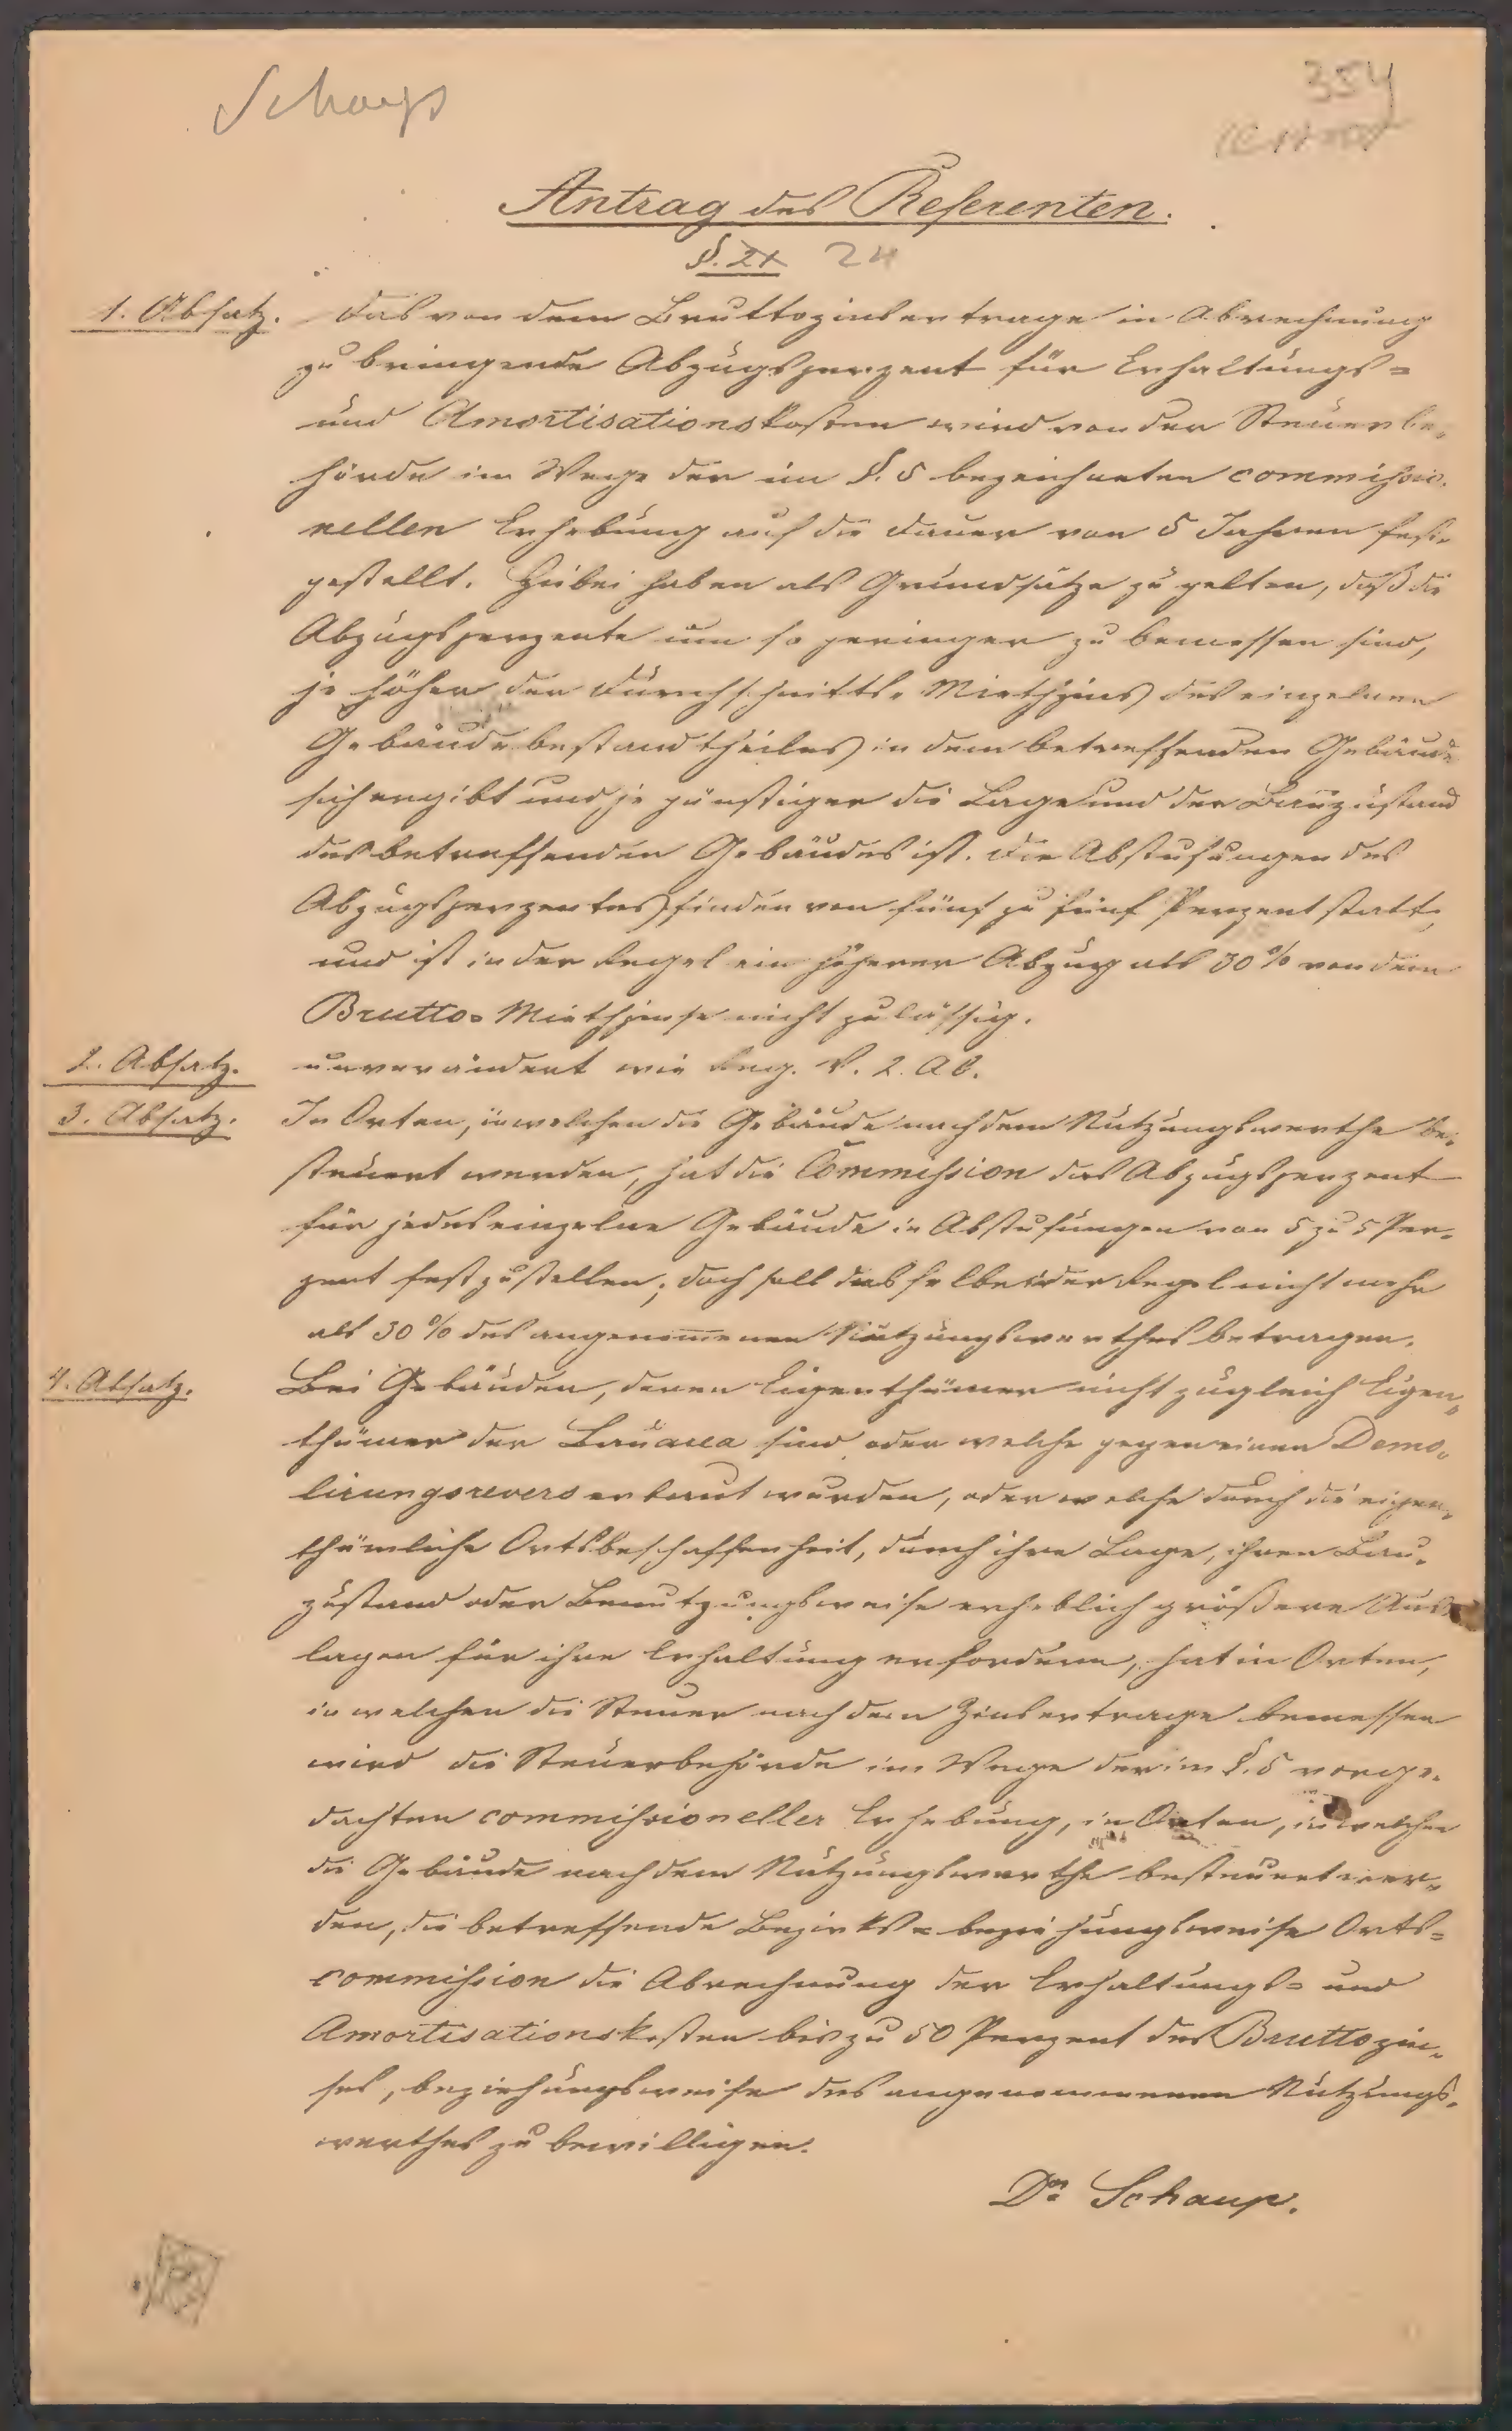 Schaup
354
Antrag des Referenten.
§. 24
1. Absatz. Das von dem Bruttozinsertrage in Abrechnung
zu bringende Abzugsperzent für Erhaltungs-
und Amortisationskosten wird von der Steuerbe-
hörde im Wege der im §. 5 bezeichneten commissio-
nellen Erhebung auf die Dauer von 5 Jahren fest-
gestellt. Hiebei haben als Grundsätze zu gelten, daß die
Abzugsperzente um so geringer zu bemessen sind,
je höher der Durchschnitts-Miethzins des einzelnen
Gebäudebestandtheiles in dem betreffenden Gebäude
sich ergibt und je günstiger die Lage und der Bauzustand
des betreffenden Gebäudes ist. Die Abstufungen des
Abzugsperzentes finden von fünf zu fünf Perzent statt,
und ist in der Regel ein höherer Abzug als 30% von dem
Brutto-Miethzinse nicht zulässig.
2. Absatz. unverändert wie Reg. V. 2. Ab.
3. Absatz. In Orten, in welchen die Gebäude nach dem Nutzungswerthe be-
steuert werden, hat die Commission das Abzugsperzent
für jedes einzelne Gebäude in Abstufungen von 5 zu 5 Per-
zent festzustellen; doch soll dasselbe in der Regel nicht mehr
als 30% des angenommenen Nutzungswerthes betragen.
4. Absatz. Bei Gebäuden, deren Eigenthümer nicht zugleich Eigen-
thümer der Bauarea sind oder welche gegen einen Demo-
lirungsrevers erbaut wurden, oder welche durch die eigen-
thümliche Ortsbeschaffenheit, durch ihre Lage, ihren Bau-
zustand oder Benutzungsweise erheblich größere Aus-
lagen für ihre Erhaltung erfordern, hat in Orten,
in welchen die Steuer nach dem Zinsertrage bemessen
wird die Steuerbehörde im Wege der im §. 5 vorge-
dachten commissioneller Erhebung, in Orten, in welchen
die Gebäude nach dem Nutzungswerthe besteuert wer-
den, die betreffende Bezirks- beziehungsweise Orts-
commission die Abrechnung der Erhaltungs- und
Amortisationskosten bis zu 50 Perzent des Bruttozin-
ses, beziehungsweise des angenommenen Nutzungs-
werthes zu bewilligen.
Dr. Schaup.